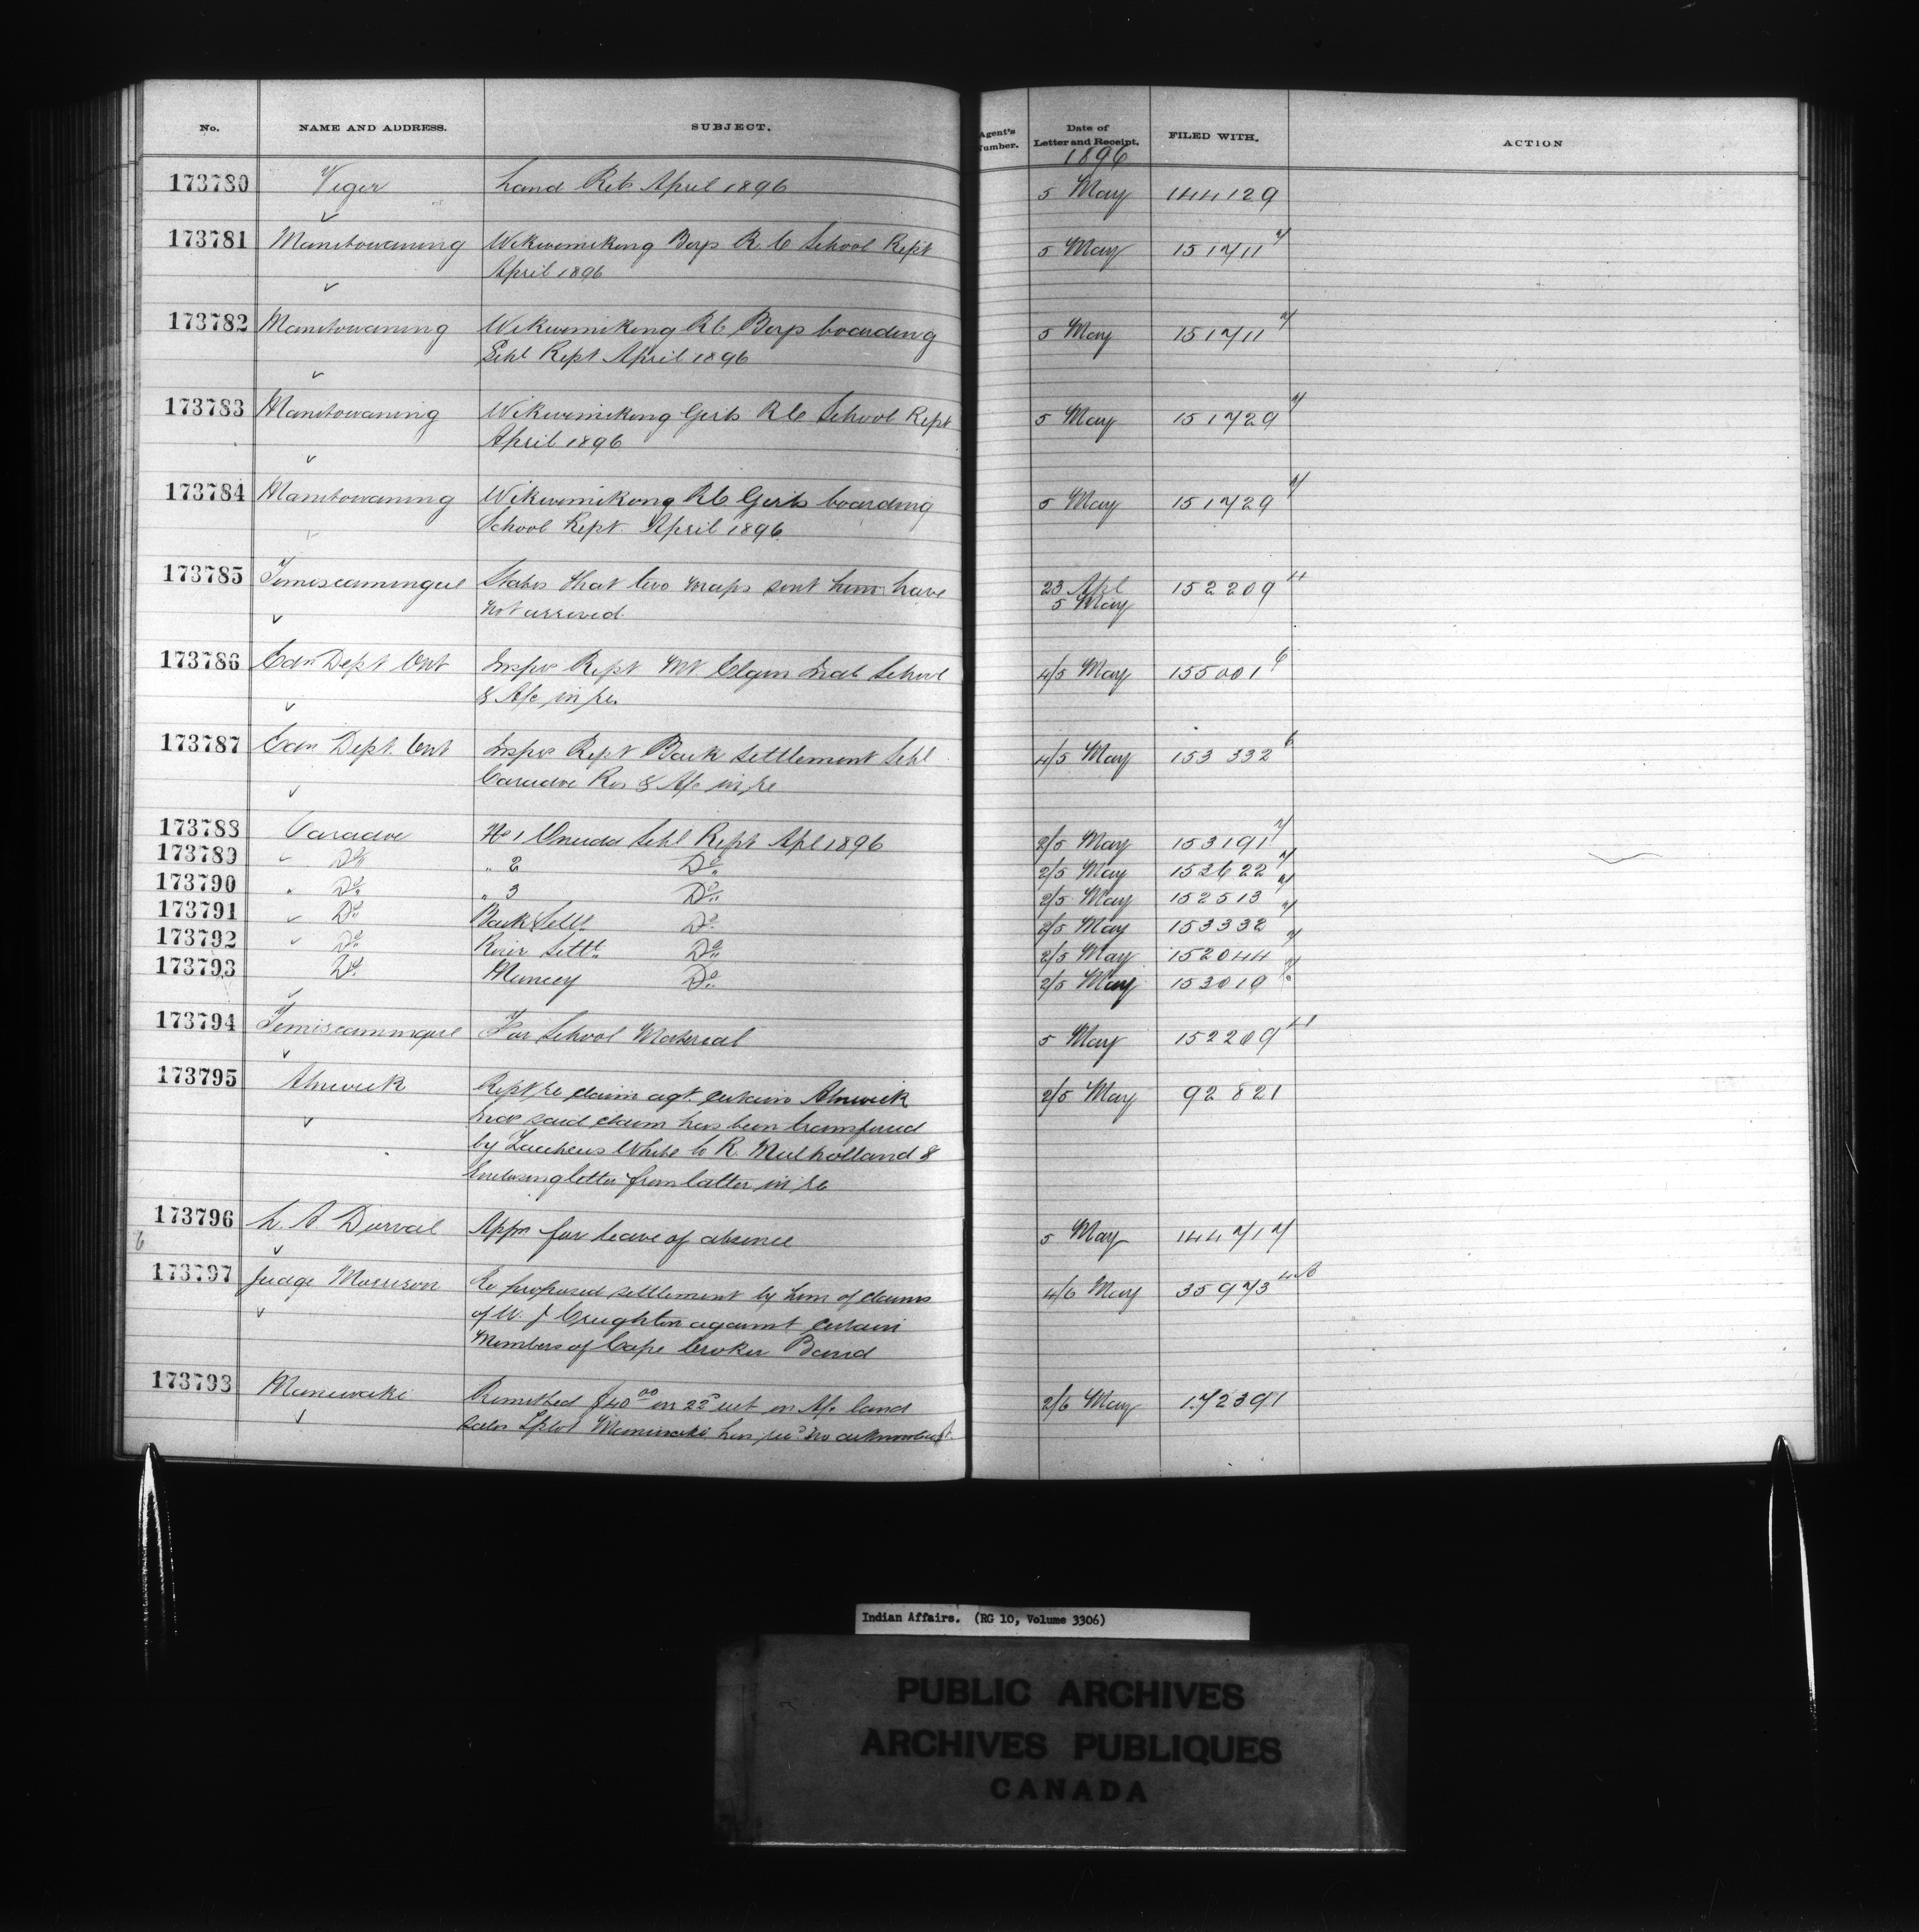 No. NAME AND ADDRESS. SUBJECT. Agent's Number. Date of Letter and Receipt. FILED WITH. ACTION
1896
173780 Viger Land Rets April 1896 5 May 144129
173781 Manitowaning Wikwemikong Boys R.C School Rept 5 May 151711 7
April 1896
173782 Manitowaning Wikwemikong RC Boys boarding 5 May 151711 7
Schl Rept April 1896
173783 Manitowaning Wikwemikong Girls RC School Rept 5 May 151729 7
April 1896
173784 Manitowaning Wikwemikong RC Girls boarding 5 May 151729 7
School Rept. April 1896
173785 Temiscamingue States that two maps sent him have 23 Apl 152209 11
not arrived 5 May
173786 Edn Dept Ont Insprs Rept Mt Elgin Indl School 4/5 May 155001 6
& A/c in re.
173787 Edn Dept. Ont Insprs Rept Back Settlement Schl 4/5 May 153332 6
Caradoc Res & A/c in re
173788 Caradoc No 1 Oneida Schl Rept Apl 1896 2/5 May 153191 7
173789 Do " 2 Do 2/5 May 153622 7
173790 " Do " 3 Do 2/5 May 152513 7
173791 Do Back Settt Do 2/5 May 153332 7
173792 Do River Settt Do 2/5 May 152044 7
173793 Do Muncey Do 2/5 May 153019
173794 Temiscamingue For School Material 5 May 152209 11
173795 Alnwick Rept re claim agt. certain Alnwick 2/5 May 92821
Inds said claim has been transferred
by Zaccheus White to R. Mulholland &
Enclosing letter from latter in re
173796 L. A. Dorval Appn for leave of absence 5 May 144717
6
173797 Judge Morrison Re proposed settlement by him of claims 4/6 May 35973
of W. J Creighton against certain
Members of Cape Croker Band
173798 Maniwaki Remitted $40 00 on 22d ult on A/c land 2/6 May 172391
sales Maniwaki has recd no
Indian Affairs. (RG 10, Volume 3306)
PUBLIC ARCHIVES
ARCHIVES PUBLIQUES
CANADA